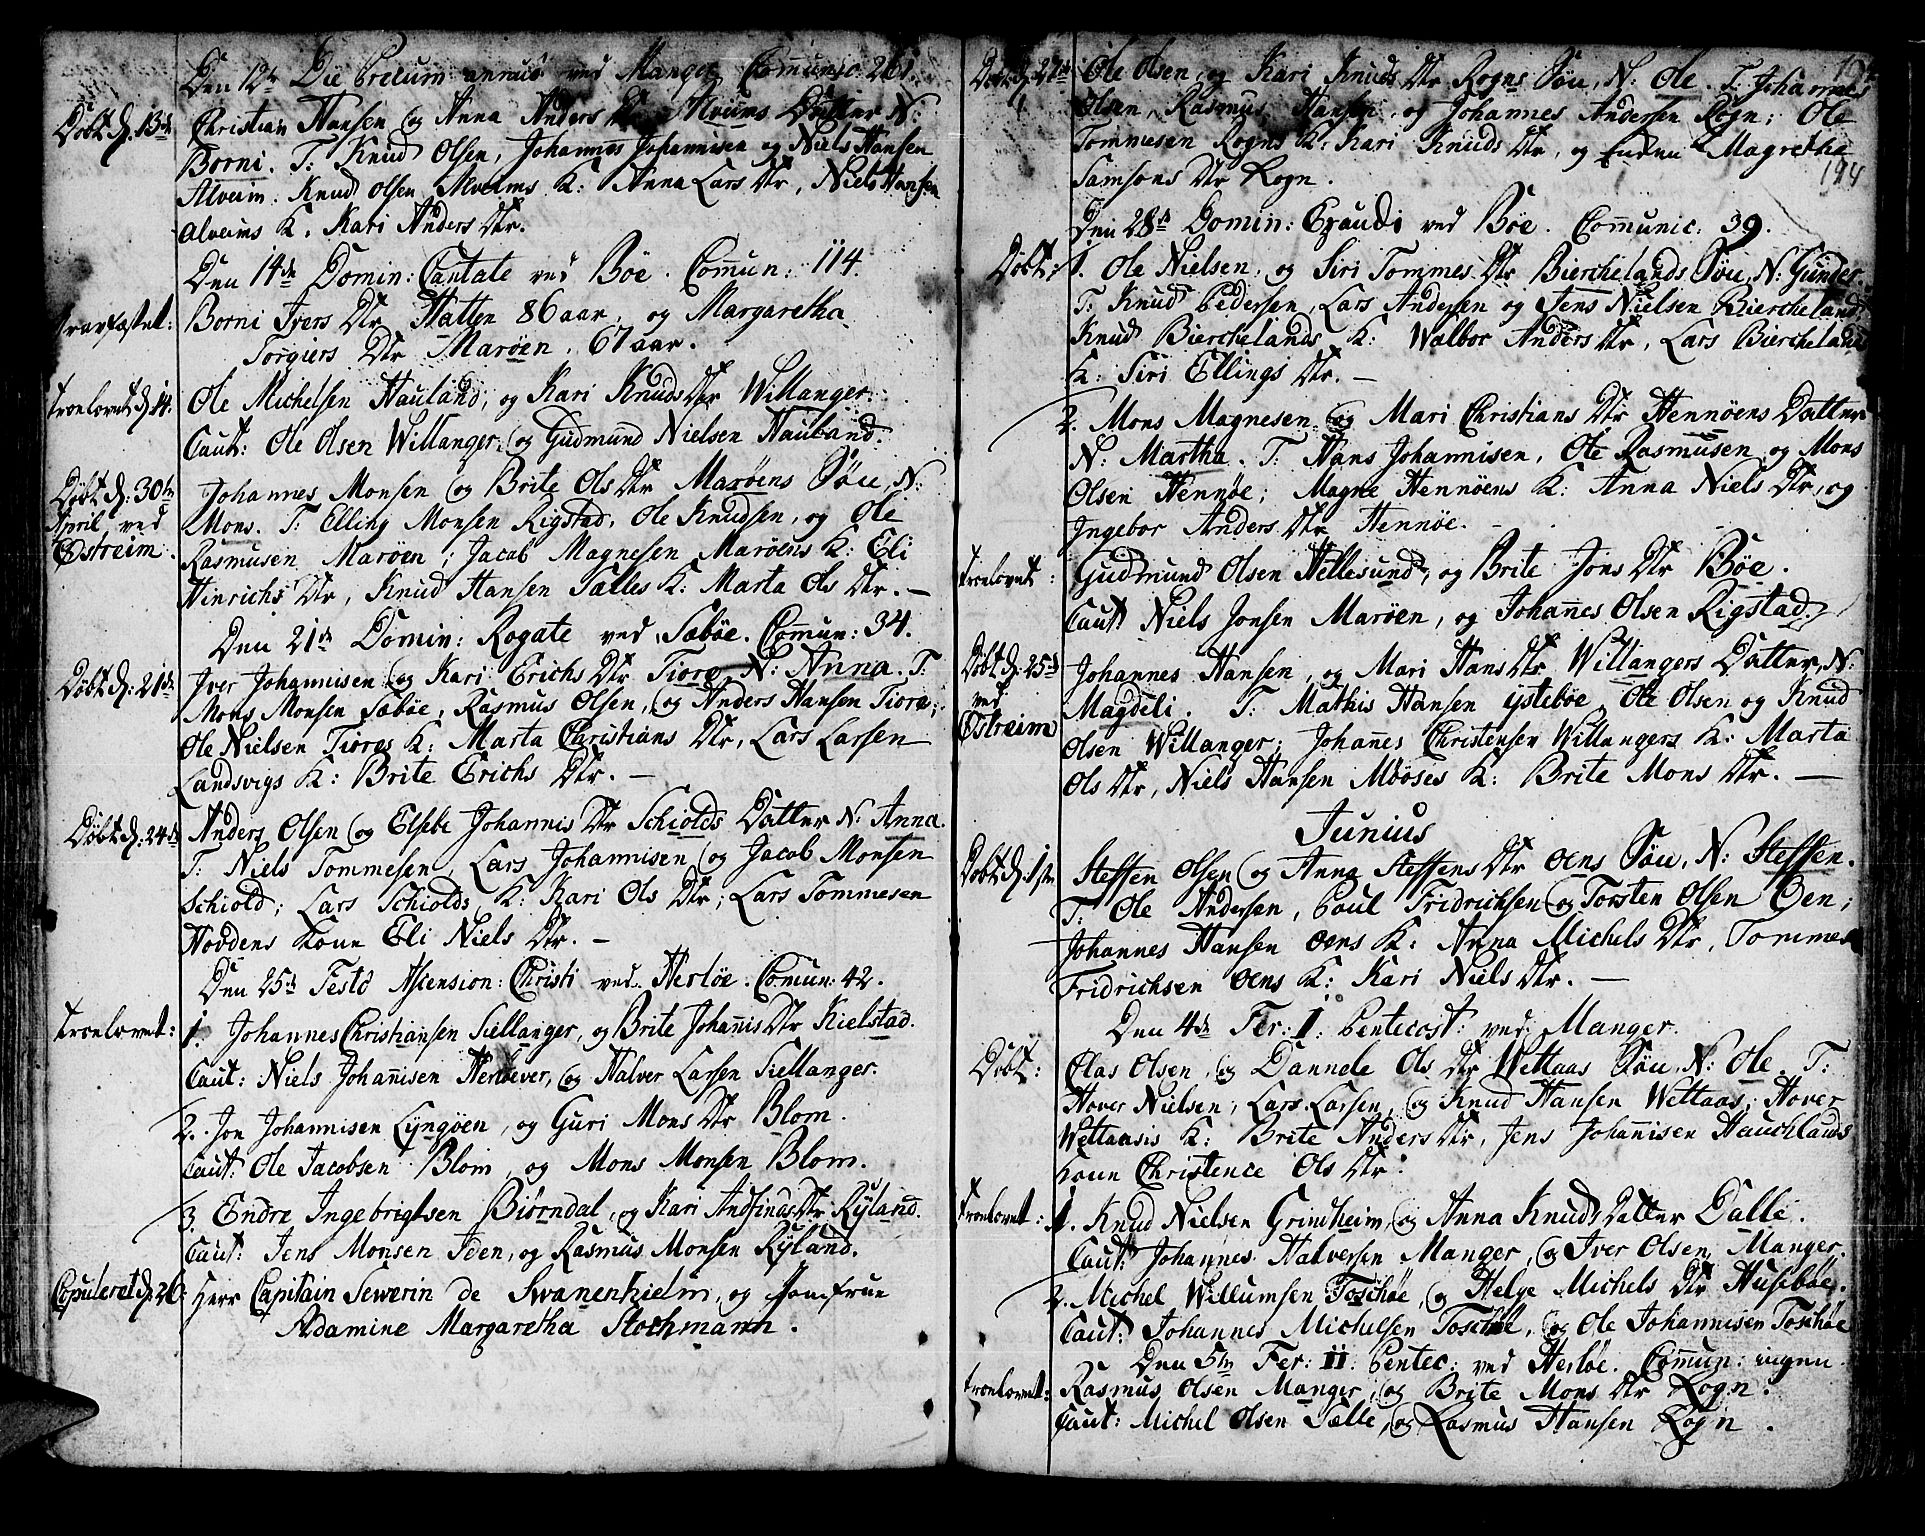 Den 12te Die Precum annuo ved Manger Communic. 261.
Døbt d. 13de Christian Hansen og Anna Anders Dtr Alveims Datter N:
Borni. T: Knud Olsen, Johannes Johannisen og Niels Hansen
Alveim: Knud Olsen Alveims K: Anna Lars Dtr, Niels Hansen
Alveims K. Kari Anders Dtr.
Den 14de Domin: Cantate ved Bøe. Commun: 114.
Borni Ivers Dtr Hatten 86 aar, og Margaretha
Torgiers Dtr Marøen, 67 aar.
Troelovet d. 14. Ole Michelsen Hauland, og Kari Knuds Dtr Willanger.
Caut: Ole Olsen Willanger, og Gudmund Nielsen Hauland.
Døbt d: 30te Johannes Monsen og Brite Ols Dtr Marøens Søn, N:
April ved Mons. T: Elling Monsen Rigstad, Ole Knudsen, og Ole
Østreim. Rasmusen Marøen; Jacob Magnesen Marøens K: Eli
Hinrichs Dtr, Knud Hansen Sælles K: Marta Ols Dtr. —
Den 21de Domin: Rogate ved Sæbøe. Commun: 34.
Døbt d: 21de Iver Johannisen og Kari Erichs Dtr Tiore N: Anna. T:
Mons Monsen Sæbøe, Rasmus Olsen, og Anders Hansen Tiore;
Ole Nielsen Tiores K: Marta Christians Dtr, Lars Larsen
Landsvigs K: Brite Erichs Dtr. —
Døbt d: 24de Anders Olsen og Elsebe Johannis Dtr Schiolds Datter N: Anna.
T: Niels Tommesen, Lars Johannisen og Jacob Monsen
Schiold; Lars Schiolds K: Kari Ols Dtr; Lars Tommesen
Hovdens Kone Eli Niels Dtr. —
Den 25de Festo Ascension: Christi ved Herløe. Comun: 42.
Troelovet: 1. Johannes Christiansen Siellanger, og Brite Johannis Dtr Kielstad.
Caut: Niels Johannisen Herløever, og Halver Larsen Siellanger.
2. Jon Johannisen Lyngøen, og Guri Mons Dtr Blom.
Caut: Ole Jacobsen Blom, og Mons Monsen Blom.
3. Endre Ingebrigtsen Biørndal, og Kari Andfinds Dtr Ryland.
Caut: Jens Monsen Iden, og Rasmus Monsen Ryland.
Copuleret d: 26: Herr Capitain Sewerin de Swanenhielm, og Jomfrue
Adamine Margaretha Stochmann.
194
Døbt d. 27de Ole Olsen, og Kari Knuds Dtr Rogns Søn, N: Ole. T: Johannes
Olsen, Rasmus Hansen, og Johannes Andersen Rogn; Ole
Tommesen Rogns K: Kari Knuds Dtr, og Enken Magretha
194
Samsons Dtr Rogn.
Den 28de Domin: Exaudi ved Bøe. Communic: 39.
Døbt: 1. Ole Nielsen, og Siri Tommes Dtr Bierchelands Søn, N: Gunder.
T: Knud Pedersen, Lars Andersen og Jens Nielsen Biercheland;
Knud Bierchelands K: Walbor Anders Dtr, Lars Bierchelands
K: Siri Ellings Dtr. —
2. Mons Magnesen og Mari Christians Dtr Hennøens Datter
N: Martha. T: Hans Johannisen, Ole Rasmusen og Mons
Olsen Hennøe; Magne Hennøens K: Anna Niels Dtr, og
Ingebor Anders Dtr Hennøe. -
Troelovet: Gudmund Olsen Hellesund, og Brite Jons Dtr Bøe.
Caut: Niels Jonsen Marøen, og Johannes Olsen Rigstad.
Døbt d: 25de Johannes Hansen, og Mari Hans Dtr Willangers Datter, N:
ved Magdeli. T: Mathis Hansen ystebøe, Ole Olsen og Knud
Østreim Olsen Willanger; Johannes Christensen Willangers K: Marta
Ols Dtr, Niels Hansen Mooses K: Brite Mons Dtr. —
Junius
Døbt d: 1ste Steffen Olsen og Anna Steffens Dtr Oens Søn, N: Steffen.
T: Ole Andersen, Poul Fridrichsen og Torsten Olsen Oen;
Johannes Hansen Oens K: Anna Michels Dtr, Tommes
Fridrichsen Oens K: Kari Niels Dtr. —
Den 4de Fer: I: Pentecost: ved Manger.
Døbt: Olas Olsen, og Dannele Ols Dtr Wettaas Søn, N: Ole. T:
Hover Nielsen, Lars Larsen, og Knud Hansen Wettaas; Hover
Wettaasis K: Brite Anders Dtr, Jens Johannisen Hauchlands
Kone Christence Ols Dtr.
Troelovet: 1. Knud Nielsen Grindheim, og Anna Knuds Datter Dalle.
Caut: Johannes Halversen Manger, og Iver Olsen Manger.
2. Michel Willumsen Toschøe, og Helge Michels Dtr Husebøe.
Caut: Johannes Michelsen Toschøe, og Ole Johannisen Toschøe
Den 5te Fer: II: Pentec: ved Herløe. Commun: ingen.
Troelovet: Rasmus Olsen Manger, og Brite Mons Dtr Rogn.
Caut: Michel Olsen Sælle, og Rasmus Hansen Rogn.